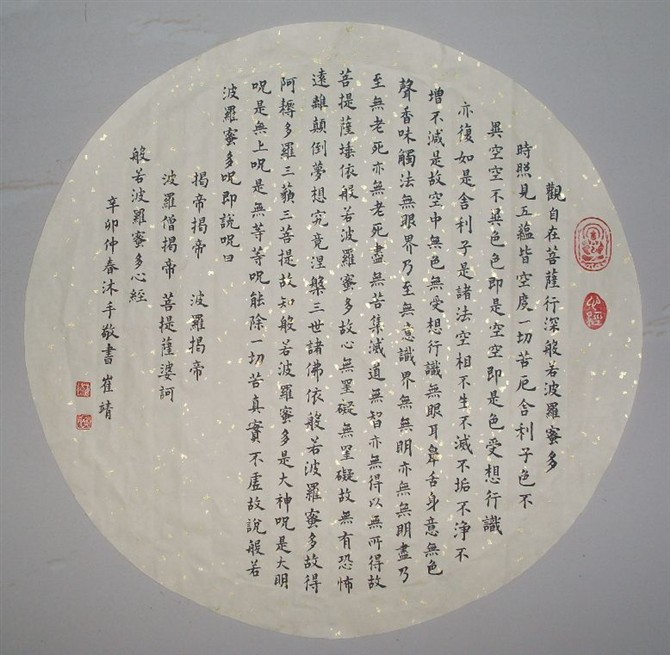 觀自在菩薩行深般若波羅蜜多
時照見五蘊皆空度一切苦厄舍利子色不
異空空不異色色即是空空即是色受想行識
亦復如是舍利子是諸法空相不生不滅不垢不淨不
增不減是故空中無色無受想行識無眼耳鼻舌身意無色
聲香味觸法無眼界乃至無意識界無無明亦無無明盡乃
至無老死亦無老死盡無苦集滅道無智亦無得以無所得故
菩提薩埵依般若波羅蜜多故心無罣礙無罣礙故無有恐怖
遠離顛倒夢想究竟涅槃三世諸佛依般若波羅蜜多故得
阿耨多羅三藐三菩提故知般若波羅蜜多是大神呪是大明
呪是無上呪是無等等呪能除一切苦真實不虛故說般若
波羅蜜多呪即說呪曰
揭帝揭帝 波羅揭帝
波羅僧揭帝 菩提薩婆訶
般若波羅蜜多心經
辛卯仲春沐手敬書 崔靖
心經